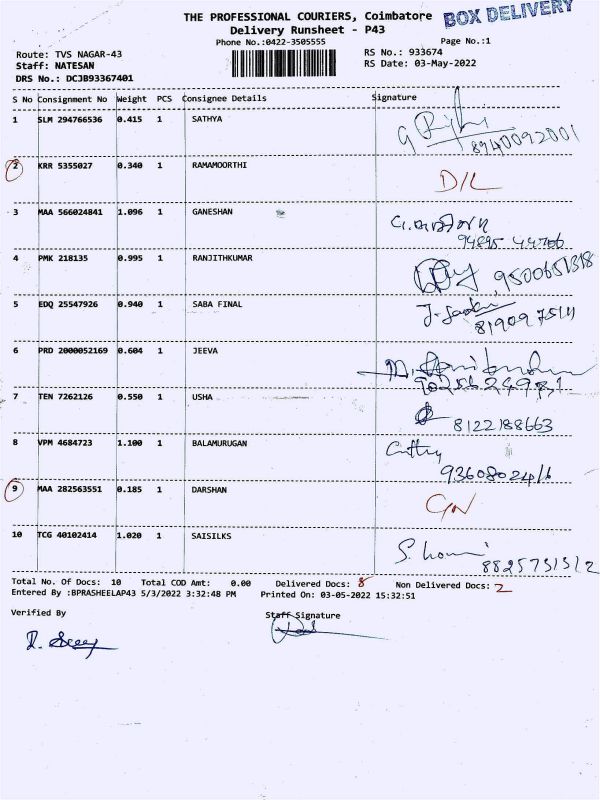 THE PROFESSIONAL COURIERS, Coimbatore
BOX DELIVERY
Delivery Runsheet - P43
Phone No.:0422-3505555 Page No.:1
Route: TVS NAGAR-43 RS No.: 933674
Staff: NATESAN RS Date: 03-May-2022
DRS No.: DCJB93367401
S No Consignment No Weight PCS Consignee Details Signature
1 SLM 294766536 0.415 1 SATHYA
8940092001
2 KRR 5355027 0.340 1 RAMAMOORTHI D/L
3 MAA 566024841 1.096 1 GANESHAN
94895 44706
4 PMK 218135 0.995 1 RANJITHKUMAR 9500651318
5 EDQ 25547926 0.940 1 SABA FINAL
6 PRD 2000052169 0.604 1 JEEVA
7 TEN 7262126 0.550 1 USHA
8122188663
8 VPM 4684723 1.100 1 BALAMURUGAN
9 MAA 282563551 0.185 1 DARSHAN
10 TCG 40102414 1.020 1 SAISILKS
Total No. Of Docs: 10 Total COD Amt: 0.00 Delivered Docs: 8 Non Delivered Docs: 2
Entered By :BPRASHEELAP43 5/3/2022 3:32:48 PM Printed On: 03-05-2022 15:32:51
Verified By Staff Signature